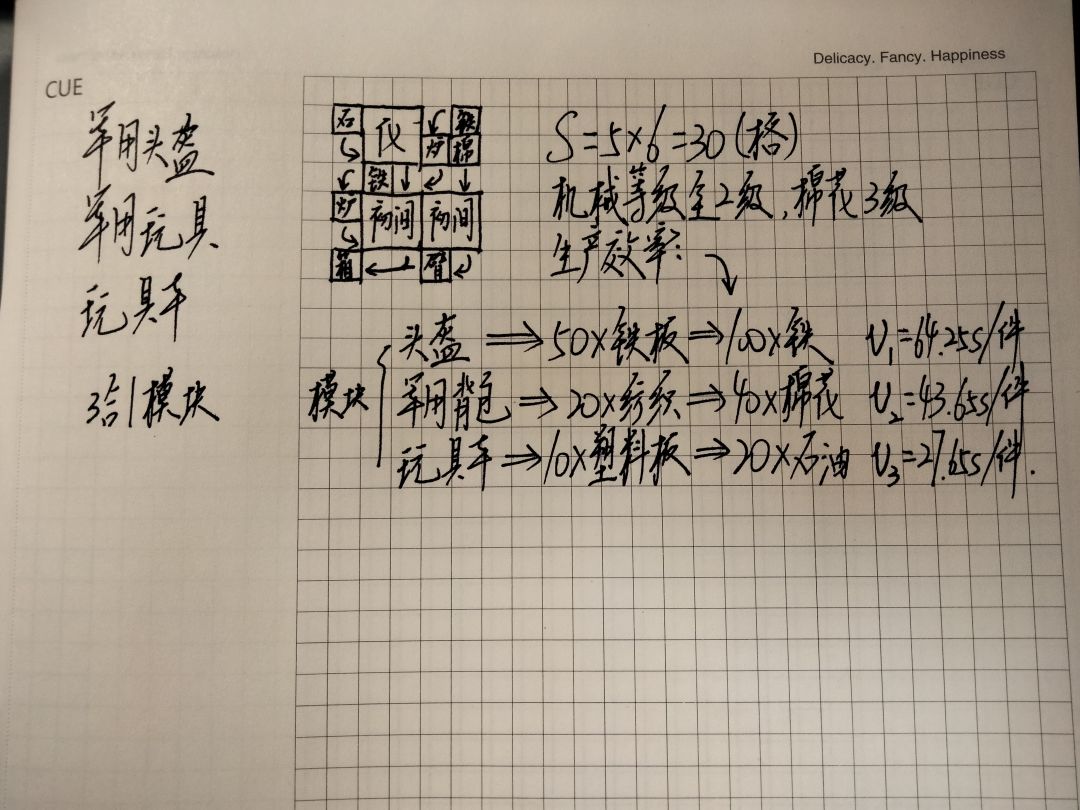 Delicacy. Fancy. Happiness
CUE
军用头盔
军用玩具
玩具车
3合1模块
石 仪 炉 铁
棉
铁
炉 初间 初间
箱 臂
S=5×6=30(格)
机械等级全2级,棉花3级
生产效率:
模块
头盔⇒50×铁板⇒100×铁 V₁=64.25s/件
军用背包⇒20×纺织⇒40×棉花 V₂=43.65s/件
玩具车⇒10×塑料板⇒20×石油 V₃=27.65s/件.